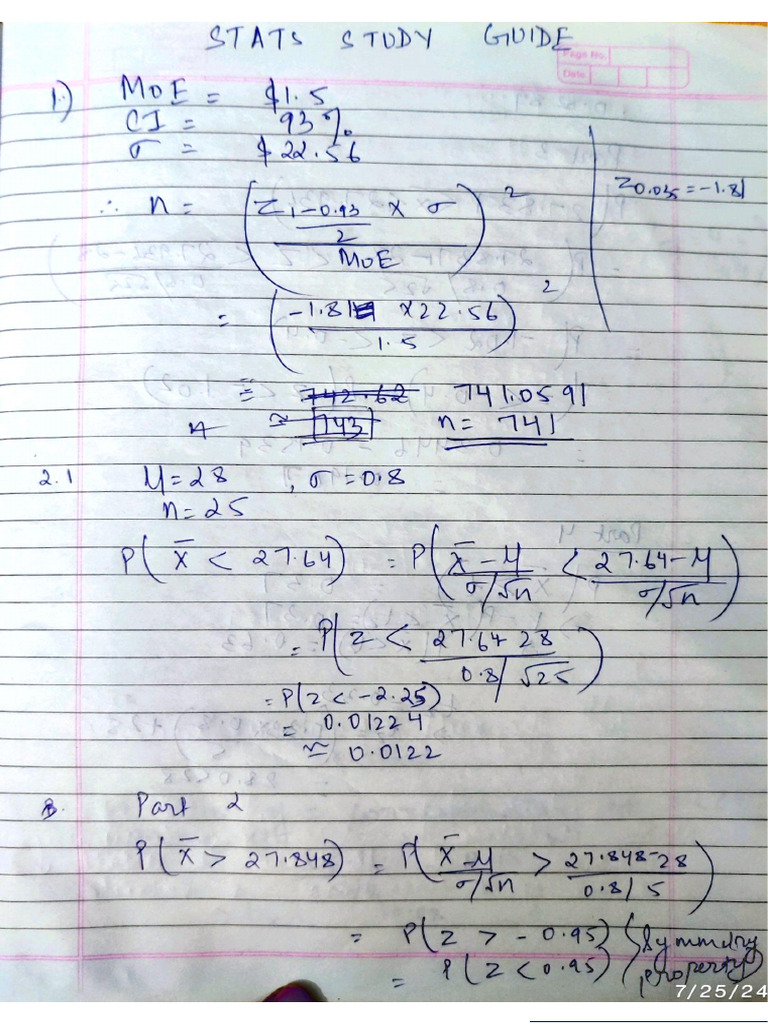 STATS STUDY GUIDE
Page No.
Date
1.) MOE = $1.5
CI = 93%
σ = $22.56
Z0.035 = -1.81
∴ n = (Z (1-0.93)/2 × σ / MOE)²
= (-1.81 × 22.56 / 1.5)²
= 742.62 741.0591
≈ 743 n = 741
2.1 μ = 28 , σ = 0.8
n = 25
P(x̄ < 27.64) = P(x̄-μ / σ/√n < 27.64-μ / σ/√n)
= P(z < 27.64 28 / 0.8/√25)
= P(z < -2.25)
= 0.01224
≈ 0.0122
Part 2
P(x̄ > 27.848) = P(x̄-μ / σ/√n > 27.848-28 / 0.8/5)
= P(z > -0.95) (Symmtry
= P(z < 0.95) property)
7/25/24